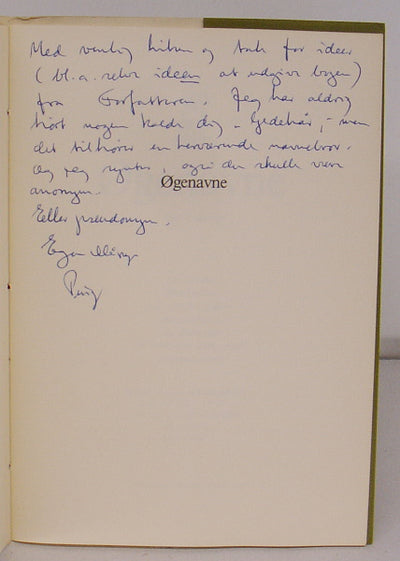 Med venlig hilsen og tak for ideer
(bl.a. selve ideen at udgive bogen)
fra Forfatteren. Jeg har aldrig
hørt nogen kalde dig "Gedehår", men
det tilhører en herværende
Og jeg synes, også du skulle være
anonym.
Øgenavne
Eller pseudonym.